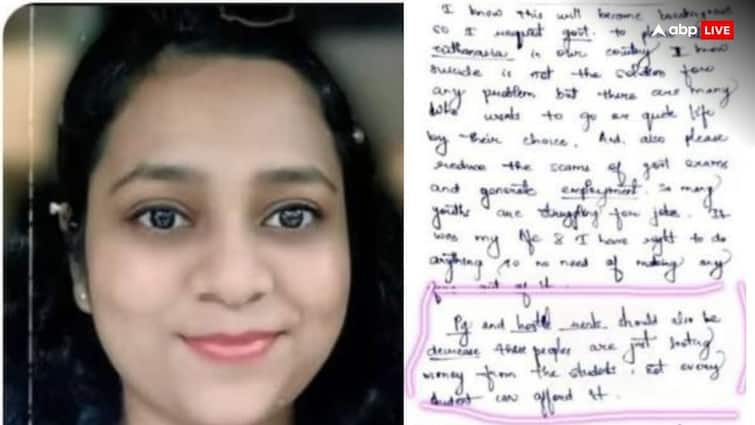 abp LIVE
I know this will become
so I request govt. to
in our country I know
suicide is not the solution for
any problem but there are many
who wants to go or quite life
by their choice. And also please
reduce the scams of govt exams
and generate employment. So many
youths are struggling for jobs. It
was my life & I have right to do
anything so no need of making any
out of it.
Pg and hostel rents should also be
decrease these peoples are just looting
money from the students, not every
student can afford it.